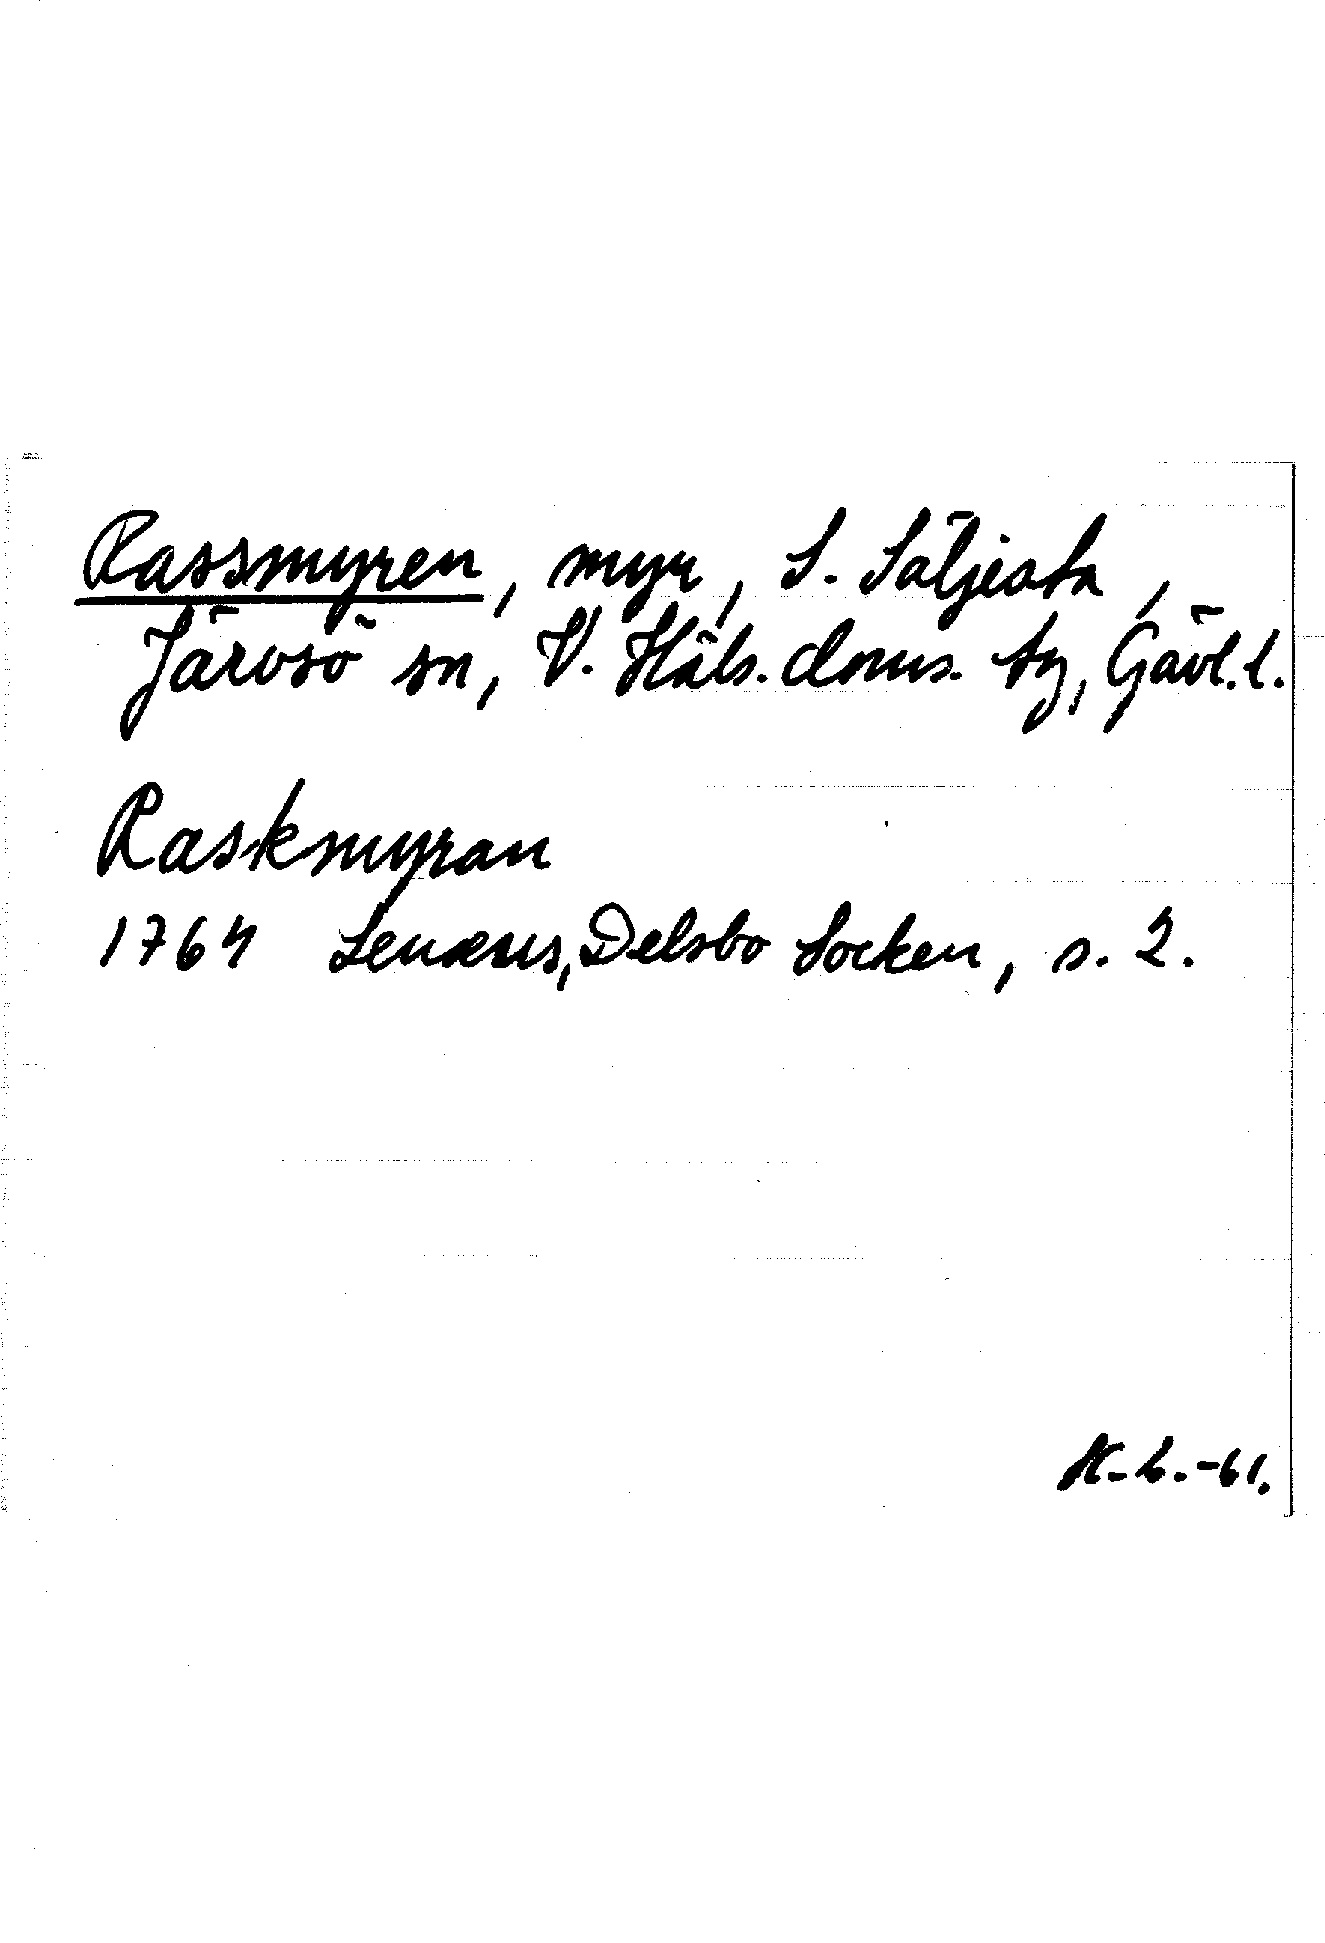 Rassmyren, myr, S. Säljesta,
Järvsö sn, V. Häls. doms. tg, Gävl. l.
Raskmyran
1764 Lenæus, Delsbo Socken, s. 2.
-61.